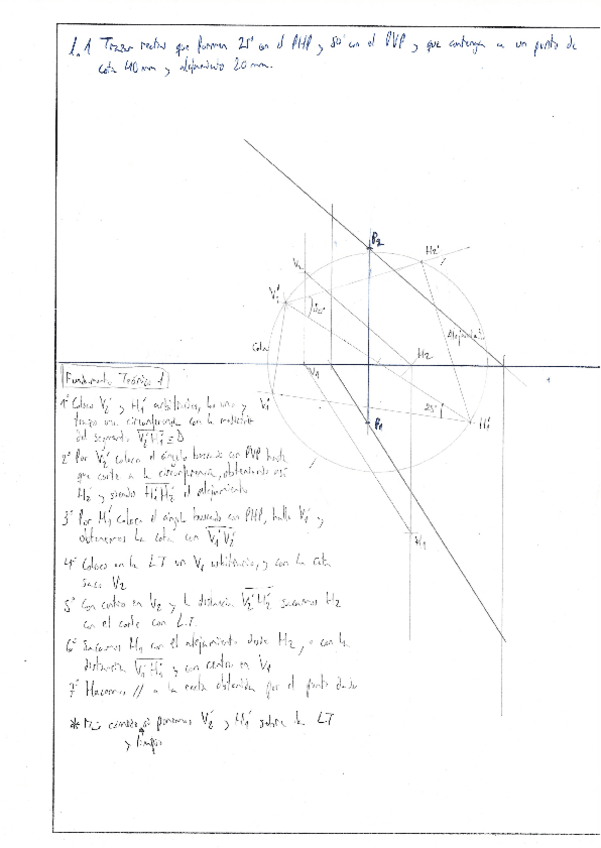 1.1 Trazar rectas que formen 25° con el PHP y 50° con el PVP y que contengan a un punto de
cota 40 mm y alejamiento 20 mm.
P₂
H₂'
V₂
V₂'
50°
Alejamien...
Cota
H₂
V₁
V₁'
25°
P₁
H₁'
H₁
Fundamento Teórico 1
1º Coloco V₂' y H₁' arbitrarios, los uno y
trazo una circunferencia con la medición
del segmento V₂'H₁' = D
2º Por V₂' coloco el ángulo buscado con PVP hasta
que corte a la circunferencia, obteniendo así
H₂' y siendo H₁'H₂' el alejamiento
3º Por H₁' coloco el ángulo buscado con PHP, hallo V₁' y
obtenemos la cota con V₁'V₂'
4º Coloco en la LT un V₁ arbitrario, y con la cota
saco V₂
5º Con centro en V₂ y la distancia V₂'H₂' sacamos H₂
con el corte con L.T.
6º Sacamos H₁ con el alejamiento desde H₂, o con la
distancia V₁'H₁' y con centro en V₁
7º Hacemos // a la recta obtenida por el punto dado
* si ponemos V₂' y H₁' sobre la LT
y limpio